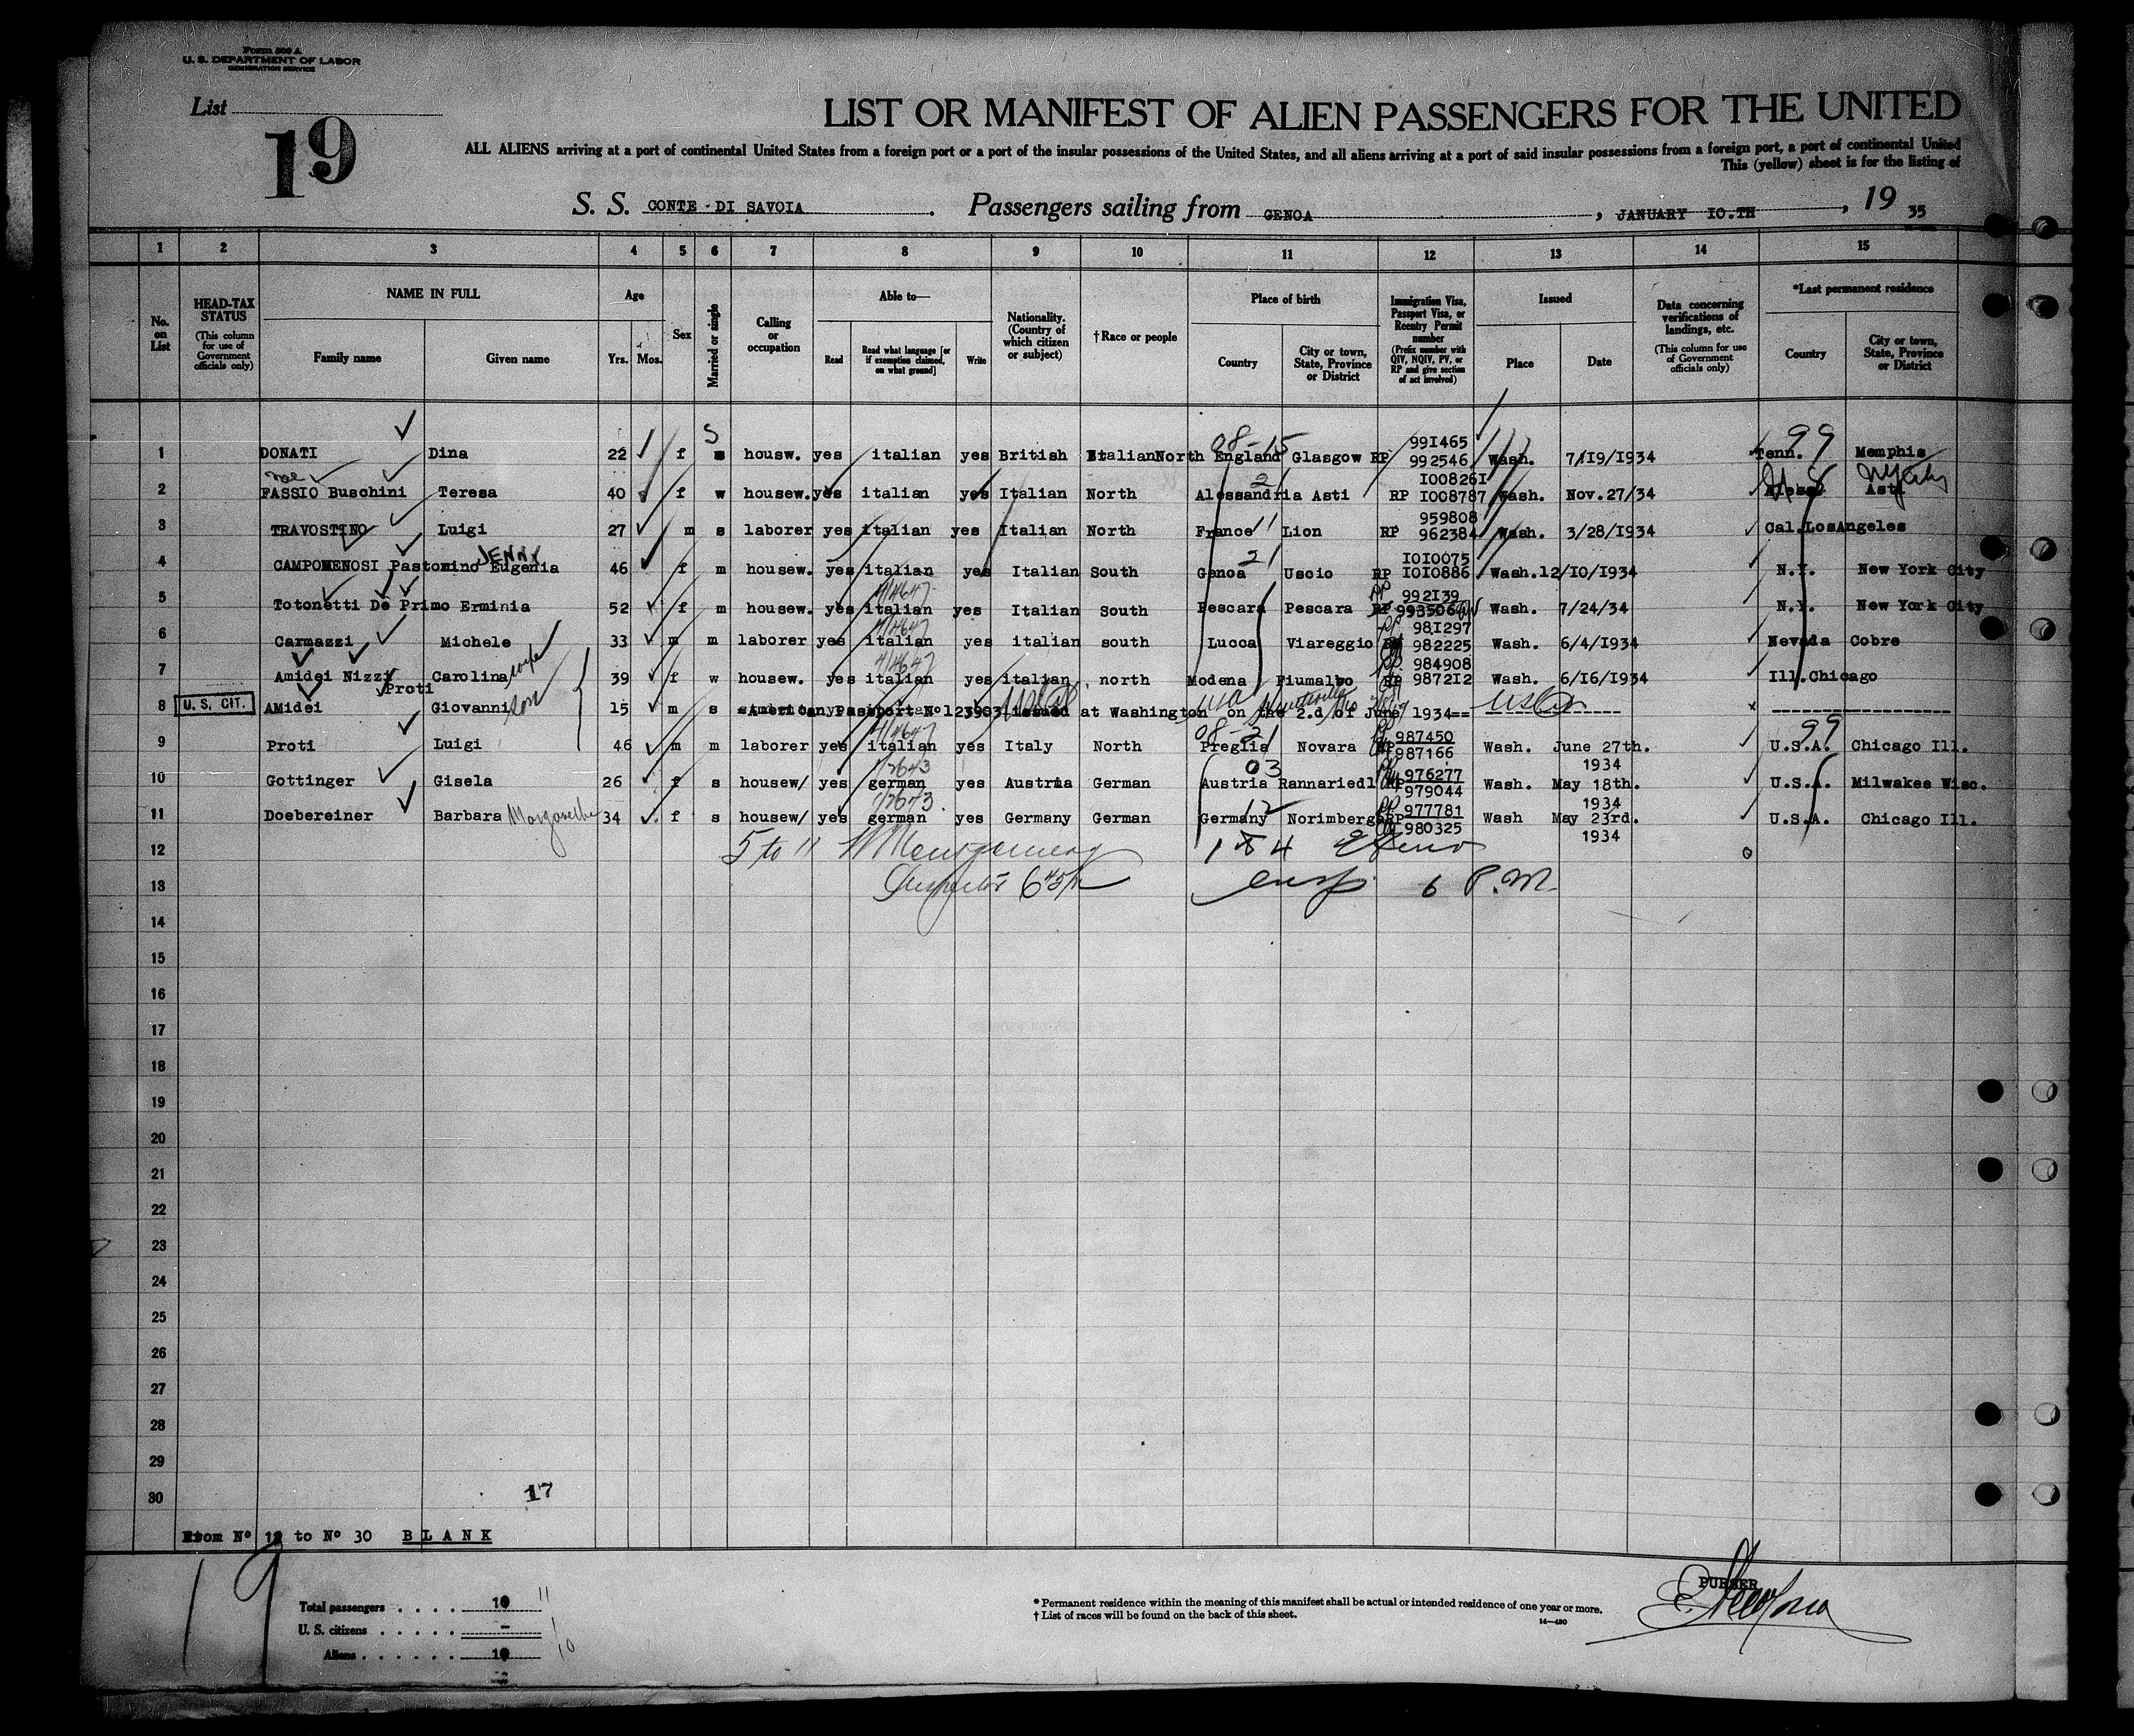 Form 500 A
U. S. DEPARTMENT OF LABOR
IMMIGRATION SERVICE
List
19
LIST OR MANIFEST OF ALIEN PASSENGERS FOR THE UNITED
ALL ALIENS arriving at a port of continental United States from a foreign port or a port of the insular possessions of the United States, and all aliens arriving at a port of said insular possessions from a foreign port, a port of continental United
This (yellow) sheet is for the listing of
S. S. CONTE DI SAVOIA. Passengers sailing from GENOA, JANUARY 10.TH, 19 35
1 2 3 4 5 6 7 8 9 10 11 12 13 14 15
No. on List
HEAD-TAX STATUS (This column for use of Government officials only)
NAME IN FULL
Family name Given name
Age
Yrs. Mos.
Sex
Married or single
Calling or occupation
Able to—
Read Read what language [or if exemption claimed, on what ground] Write
Nationality. (Country of which citizen or subject)
†Race or people
Place of birth
Country City or town, State, Province or District
Immigration Visa, Passport Visa, or Reentry Permit number (Prefix number with QIV, NQIV, PV, or RP and give section of act involved)
Issued
Place Date
Data concerning verifications of landings, etc. (This column for use of Government officials only)
*Last permanent residence
Country City or town, State, Province or District
S 08-15 991465 99
1 DONATI Dina 22 f s housw. yes italian yes British ItalianNorth England Glasgow RP 992546 Wash. 7/19/1934 Tenn. Memphis
2 1008261
2 FASSIO Buschini Teresa 40 f w housew. yes italian yes Italian North Alessandria Asti RP 1008787 Wash. Nov.27/34 Asti
959808
3 TRAVOSTINO Luigi 27 m s laborer yes italian yes Italian North France 11 Lion RP 962384 Wash. 3/28/1934 Cal. LosAngeles
JENNY 21 1010075
4 CAMPOMENOSI Pastomino Eugenia 46 f m housew. yes italian yes Italian South Genoa Uscio RP 1010886 Wash.12/10/1934 N.Y. New York City
992139
5 Totonetti De Primo Erminia 52 f m housew. yes italian yes Italian South Pescara Pescara RP 993506 Wash. 7/24/34 N.Y. New York City
981297
6 Carmazzi Michele 33 m m laborer yes italian yes italian south Lucca Viareggio 982225 Wash. 6/4/1934 Nevada Cobre
984908
7 Amidei Nizzi Proti Carolina wife 39 f w housew. yes italian yes italian north Modena Fiumalbo RP 987212 Wash. 6/16/1934 Ill. Chicago
8 U. S. CIT. AMidei Giovanni son 15 m s American Passport Nº 123903 issued at Washington on the 2.d of June 1934==
08-21 987450 99
9 Proti Luigi 46 m m laborer yes italian yes Italy North Preglia Novara RP 987166 Wash. June 27th. 1934 U.S.A. Chicago Ill.
03 976277
10 Gottinger Gisela 26 f s housew/ yes german yes Austria German Austria Rannariedl RP 979044 Wash. May 18th. 1934 U.S.A. Milwakee Wisc.
12 977781
11 Doebereiner Barbara 34 f s housew/ yes german yes Germany German Germany Norimberg RP 980325 Wash May 23rd. 1934 U.S.A. Chicago Ill.
12 5 to 11 1 to 4
13 6 P.M.
14
15
16
17
18
19
20
21
22
23
24
25
26
27
28
29
30
17
From Nº 12 to Nº 30 BLANK
19
Total passengers . . . . 10 11
U. S. citizens . . . . . – 1
Aliens . . . . . . 10 10
* Permanent residence within the meaning of this manifest shall be actual or intended residence of one year or more.
† List of races will be found on the back of this sheet.
14—430
PURSER